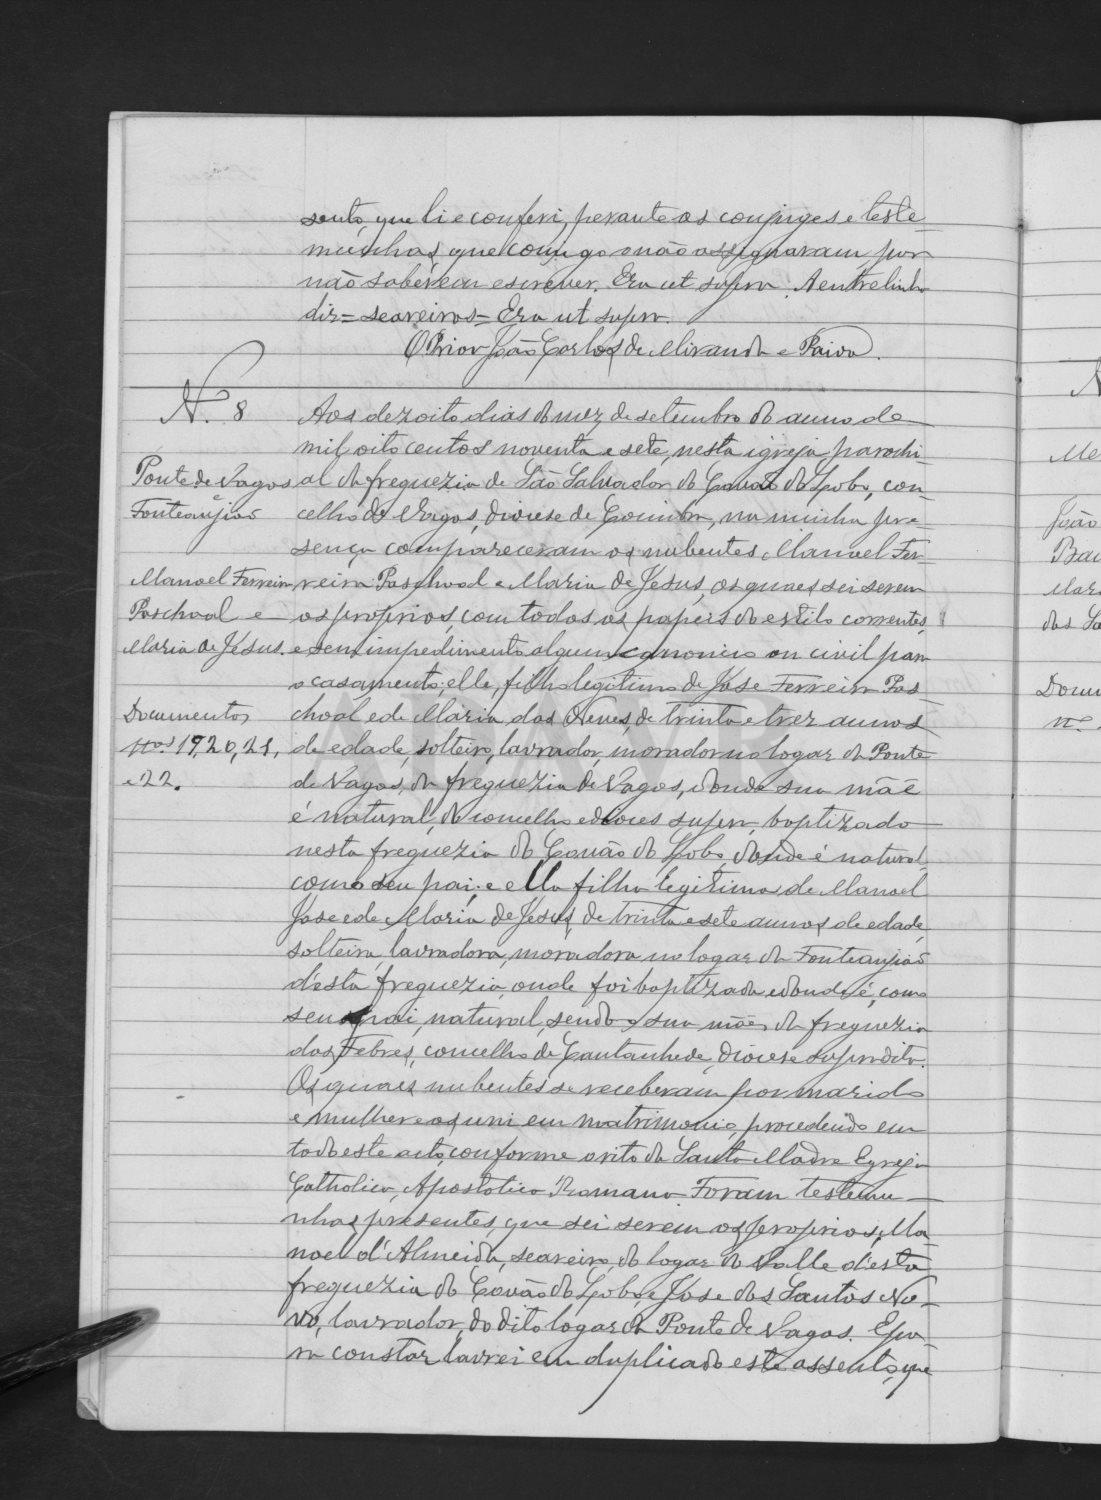 sento, que li e conferi, perante os conjuges e teste-
munhas, que comigo o não assignaram por
não saberem escrever. Era ut supra. A entrelinha
diz = seareiros = Era ut supra.
O Prior João Carlos de Miranda e Paiva.
N. 8
Ponte de Vagos
e
Fonteanjião
Manoel Ferreira
Paschoal e
Maria de Jesus.
Documentos
nos 19, 20, 21,
e 22.
Aos dezoito dias do mez de setembro do anno de
mil oito centos noventa e sete, nesta igreja parochi-
al da freguezia de São Salvador do Covão do Lobo, con-
celho de Vagos, diocese de Coimbra, na minha pre-
sença compareceram os nubentes Manoel Fer-
reira Paschoal e Maria de Jesus, os quaes sei serem
os proprios, com todos os papeis do estilo correntes,
e sem impedimento algum canonico ou civil para
o casamento; elle, filho legitimo de José Ferreira Pas-
choal e de Maria das Neves, de trinta e trez annos
de edade, solteiro, lavrador, morador no logar da Ponte
de Vagos, da freguezia de Vagos, donde sua mãe
é natural, do concelho e dioces supra, baptizado
nesta freguezia do Covão do Lobo, donde é natural
como seu pai; e ella filha legitima de Manoel
José e de Maria de Jesus, de trinta e sete annos de edade,
solteira, lavradora, moradora no logar da Fonteanjião
d'esta freguezia, onde foi baptizada e donde é, como
seu pai, natural, sendo sua mãe da freguezia
das Febres, concelho de Cantanhede, diocese supradita.
Os quaes nubentes se receberam por marido
e mulher e os uni em matrimonio, procedendo em
todo este acto, conforme o rito da Santa Madre Egreja
Catholica, Apostolica Romana. Foram testemu-
nhas presentes, que sei serem os proprios, Ma-
noel d'Almeida, seareiro, do logar do Valle d'esta
freguezia do Covão do Lobo, e José dos Santos No-
vo, lavrador, do dito logar da Ponte de Vagos. E pa-
ra constar lavrei em duplicado este assento, que